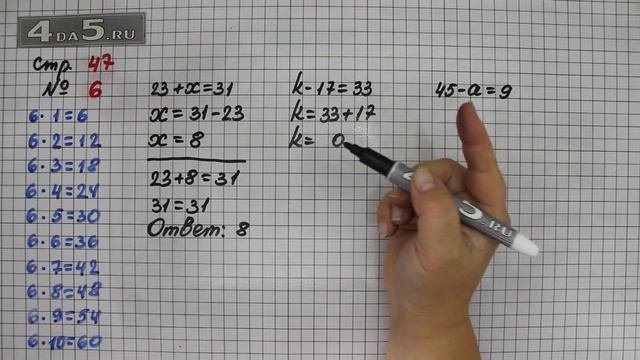 4DA5.RU
Стр. 47
№ 6
6·1=6
6·2=12
6·3=18
6·4=24
6·5=30
6·6=36
6·7=42
6·8=48
6·9=54
6·10=60
23+x=31
x=31-23
x=8
23+8=31
31=31
Ответ: 8
k-17=33
k=33+17
k= 0
45-a=9
5.RU